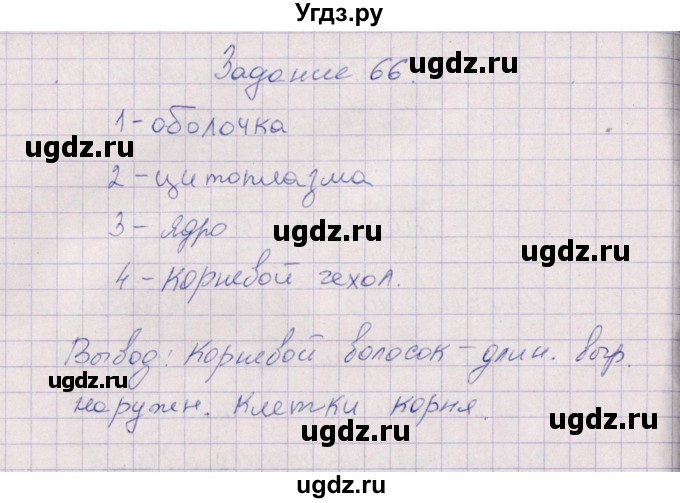 Угдз.ру
Задание 66.
ugdz.ru
1-оболочка
ugdz.ru
2-цитоплазма
ugdz.ru
3-ядро
ugdz.ru
ugdz.ru
4-Корневой чехол.
Вывод: Корневой волосок-длин. выр.
ugdz.ru
ugdz.ru
наружн. клетки корня.
ugdz.ru
ugdz.ru
ugdz.ru